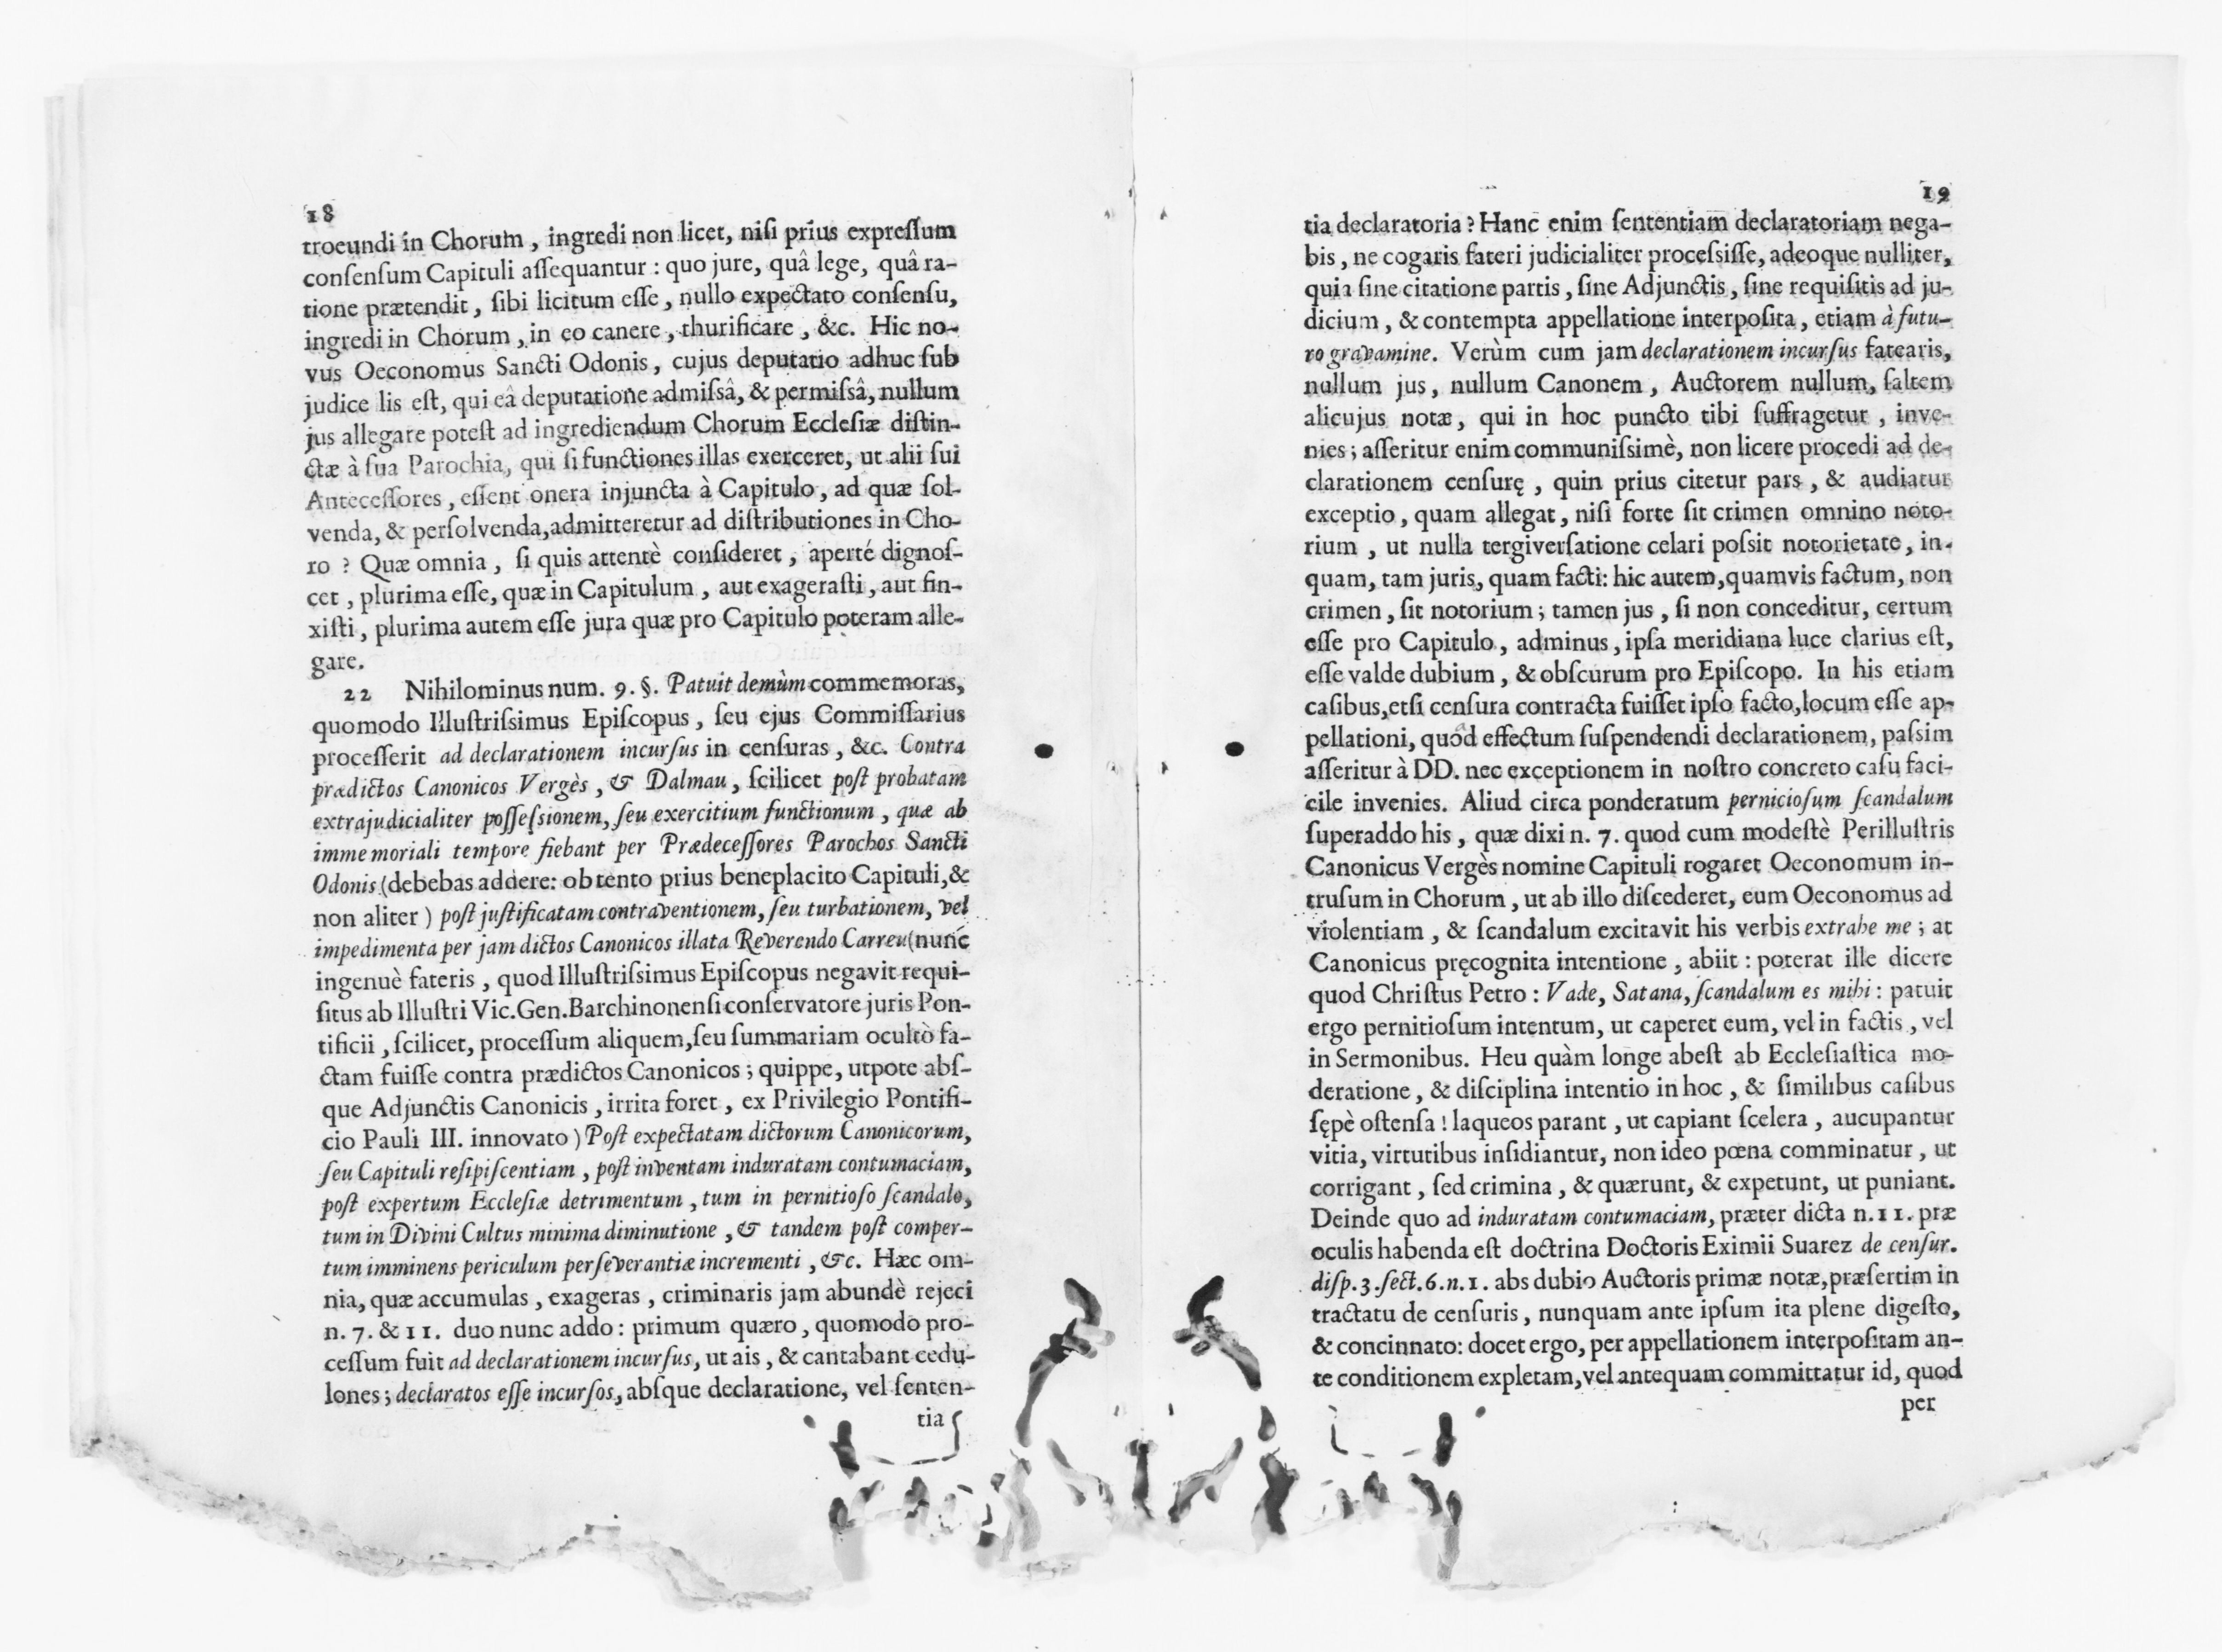 18
troeundi in Chorum, ingredi non licet, niſi prius expreſſum
conſenſum Capituli aſſequantur : quo jure, quâ lege, quâ ra-
tione prætendit, ſibi licitum eſſe, nullo expectato conſenſu,
ingredi in Chorum, in eo canere, thurificare, &c. Hic no-
vus Oeconomus Sancti Odonis, cujus deputatio adhuc ſub
judice lis eſt, qui eâ deputatione admiſsâ, & permiſsâ, nullum
jus allegare poteſt ad ingrediendum Chorum Eccleſiæ diſtin-
ctæ à ſua Parochia, qui ſi functiones illas exerceret, ut alii ſui
Anteceſſores, eſſent onera injuncta à Capitulo, ad quæ ſol-
venda, & perſolvenda, admitteretur ad diſtributiones in Cho-
ro ? Quæ omnia, ſi quis attentè conſideret, aperté dignoſ-
cet, plurima eſſe, quæ in Capitulum, aut exageraſti, aut fin-
xiſti, plurima autem eſſe jura quæ pro Capitulo poteram alle-
gare.
22 Nihilominus num. 9. §. Patuit demùm commemoras,
quomodo Illuſtriſsimus Epiſcopus, ſeu ejus Commiſſarius
proceſſerit ad declarationem incurſus in cenſuras, &c. Contra
prædictos Canonicos Vergès, & Dalmau, ſcilicet poſt probatam
extrajudicialiter poſſeſsionem, ſeu exercitium functionum, quæ ab
imme moriali tempore fiebant per Prædeceſſores Parochos Sancti
Odonis (debebas addere: obtento prius beneplacito Capituli, &
non aliter) poſt juſtificatam contraventionem, ſeu turbationem, vel
impedimenta per jam dictos Canonicos illata Reverendo Carreu (nunc
ingenuè fateris, quod Illuſtriſsimus Epiſcopus negavit requi-
ſitus ab Illuſtri Vic. Gen. Barchinonenſi conſervatore juris Pon-
tificii, ſcilicet, proceſſum aliquem, ſeu ſummariam ocultò fa-
ctam fuiſſe contra prædictos Canonicos ; quippe, utpote abſ-
que Adjunctis Canonicis, irrita foret, ex Privilegio Pontifi-
cio Pauli III. innovato) Poſt expectatam dictorum Canonicorum,
ſeu Capituli reſipiſcentiam, poſt inventam induratam contumaciam,
poſt expertum Eccleſiæ detrimentum, tum in pernitioſo ſcandalo,
tum in Divini Cultus minima diminutione, & tandem poſt comper-
tum imminens periculum perſeverantiæ incrementi, &c. Hæc om-
nia, quæ accumulas, exageras, criminaris jam abundè rejeci
n. 7. & 11. duo nunc addo : primum quæro, quomodo pro-
ceſſum fuit ad declarationem incurſus, ut ais, & cantabant cedu-
lones ; declaratos eſſe incurſos, abſque declaratione, vel ſenten-
tia
19
tia declaratoria ? Hanc enim ſententiam declaratoriam nega-
bis, ne cogaris fateri judicialiter proceſsiſſe, adeoque nulliter,
quia ſine citatione partis, ſine Adjunctis, ſine requiſitis ad ju-
dicium, & contempta appellatione interpoſita, etiam à futu-
ro gravamine. Verùm cum jam declarationem incurſus fatearis,
nullum jus, nullum Canonem, Auctorem nullum, ſaltem
alicujus notæ, qui in hoc puncto tibi ſuffragetur, inve-
nies ; aſſeritur enim communiſsimè, non licere procedi ad de-
clarationem cenſurę, quin prius citetur pars, & audiatur
exceptio, quam allegat, niſi forte ſit crimen omnino noto-
rium, ut nulla tergiverſatione celari poſsit notorietate, in-
quam, tam juris, quam facti: hic autem, quamvis factum, non
crimen, ſit notorium ; tamen jus, ſi non conceditur, certum
eſſe pro Capitulo, adminus, ipſa meridiana luce clarius eſt,
eſſe valde dubium, & obſcurum pro Epiſcopo. In his etiam
caſibus, etſi cenſura contracta fuiſſet ipſo facto, locum eſſe ap-
pellationi, quoad effectum ſuſpendendi declarationem, paſsim
aſſeritur à DD. nec exceptionem in noſtro concreto caſu faci-
cile invenies. Aliud circa ponderatum pernicioſum ſcandalum
ſuperaddo his, quæ dixi n. 7. quod cum modeſtè Perilluſtris
Canonicus Vergès nomine Capituli rogaret Oeconomum in-
truſum in Chorum, ut ab illo diſcederet, eum Oeconomus ad
violentiam, & ſcandalum excitavit his verbis extrahe me ; at
Canonicus pręcognita intentione, abiit : poterat ille dicere
quod Chriſtus Petro : Vade, Satana, ſcandalum es mihi : patuit
ergo pernitioſum intentum, ut caperet eum, vel in factis, vel
in Sermonibus. Heu quàm longe abeſt ab Eccleſiaſtica mo-
deratione, & diſciplina intentio in hoc, & ſimilibus caſibus
ſępè oſtenſa ! laqueos parant, ut capiant ſcelera, aucupantur
vitia, virtutibus inſidiantur, non ideo pœna comminatur, ut
corrigant, ſed crimina, & quærunt, & expetunt, ut puniant.
Deinde quo ad induratam contumaciam, præter dicta n. 11. præ
oculis habenda eſt doctrina Doctoris Eximii Suarez de cenſur.
diſp. 3. ſect. 6. n. 1. abs dubio Auctoris primæ notæ, præſertim in
tractatu de cenſuris, nunquam ante ipſum ita plene digeſto,
& concinnato: docet ergo, per appellationem interpoſitam an-
te conditionem expletam, vel antequam committatur id, quod
per